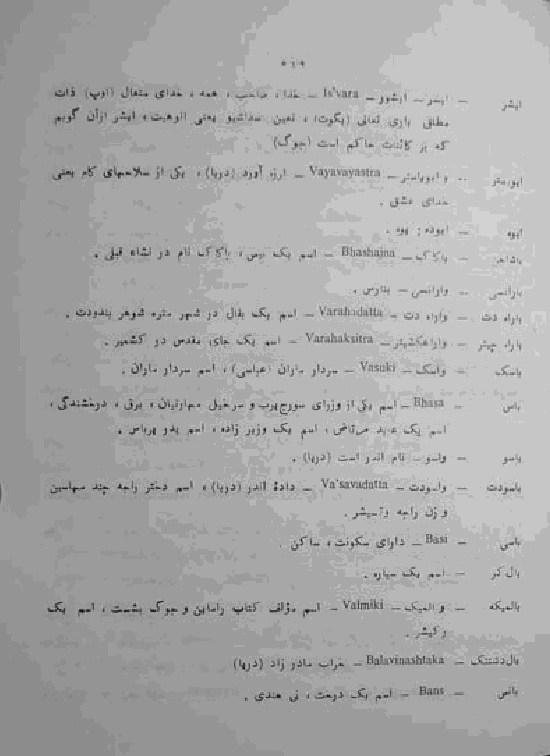 ایشر — ایسر — ایشور — Is'vara — خدا، صاحب، همه، خدای متعال (اوپ) ذات
مطلق باری تعالی (بگوت)، تعین سداشیو یعنی الوهیت، ایشر ازآن گویم
که بر کائنات حاکم است (جوگ)
وایویاستر — Vayavayastra — ارزه آورد (دریا)، یکی از سلاحهای کام یعنی
خدای عشق.
ایوه — ایوده؛ یوه.
Bhashajna — اسم یک، نام در نشاء قبلی.
بارانسی — وارانسی — بنارس.
باراه دت — واراه دت — Varahadatta — اسم یک بقال در شهر متره شوهر بندودت.
باراه چهتر — واراهکشیتر — Varahaksitra — اسم یک جای مقدس در کشمیر.
باسک — واسک — Vasuki — سردار ماران (عباسی)، اسم سردار ماران.
باس — Bhasa — اسم یکی از وزرای سورج پربه و سرخیل مبارزان، برق، درخشندگی،
اسم یک عابد مرتاض، اسم یک وزیر زاده، اسم پدر
باسو — واسو — نام اندر است (دریا).
باسودت — واسودت — Va'savadatta — دادهٔ اندر (دریا)، اسم دختر راجه چند مهاسین
و زن راجه
باسی — Basi — دارای سکونت، ساکن.
بال کر — اسم یک سیاره.
بالمیکه — والمیک — Valmiki — اسم مؤلف کتاب راماین و جوگ بشست، اسم یک
رکیشر.
بال دشتتک — Balavinashtaka — خراب مادر زاد (دریا)
بانس — Bans — اسم یک درخت، نی هندی.